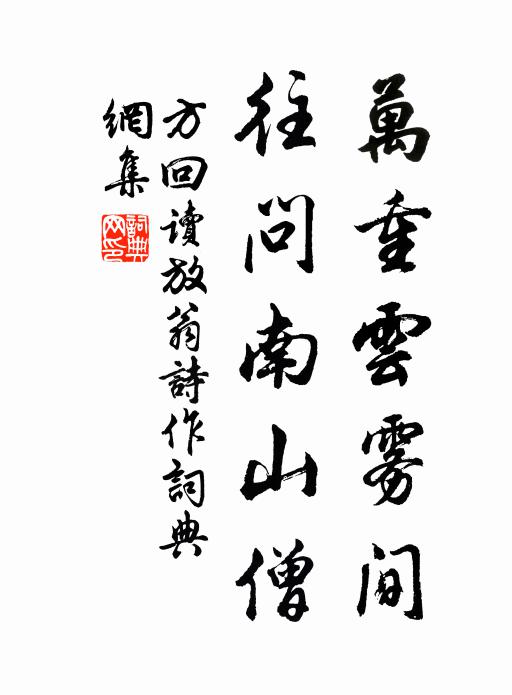 萬重雲霧間
往問南山僧
方回讀放翁詩作詞典
網集
詞典
网印